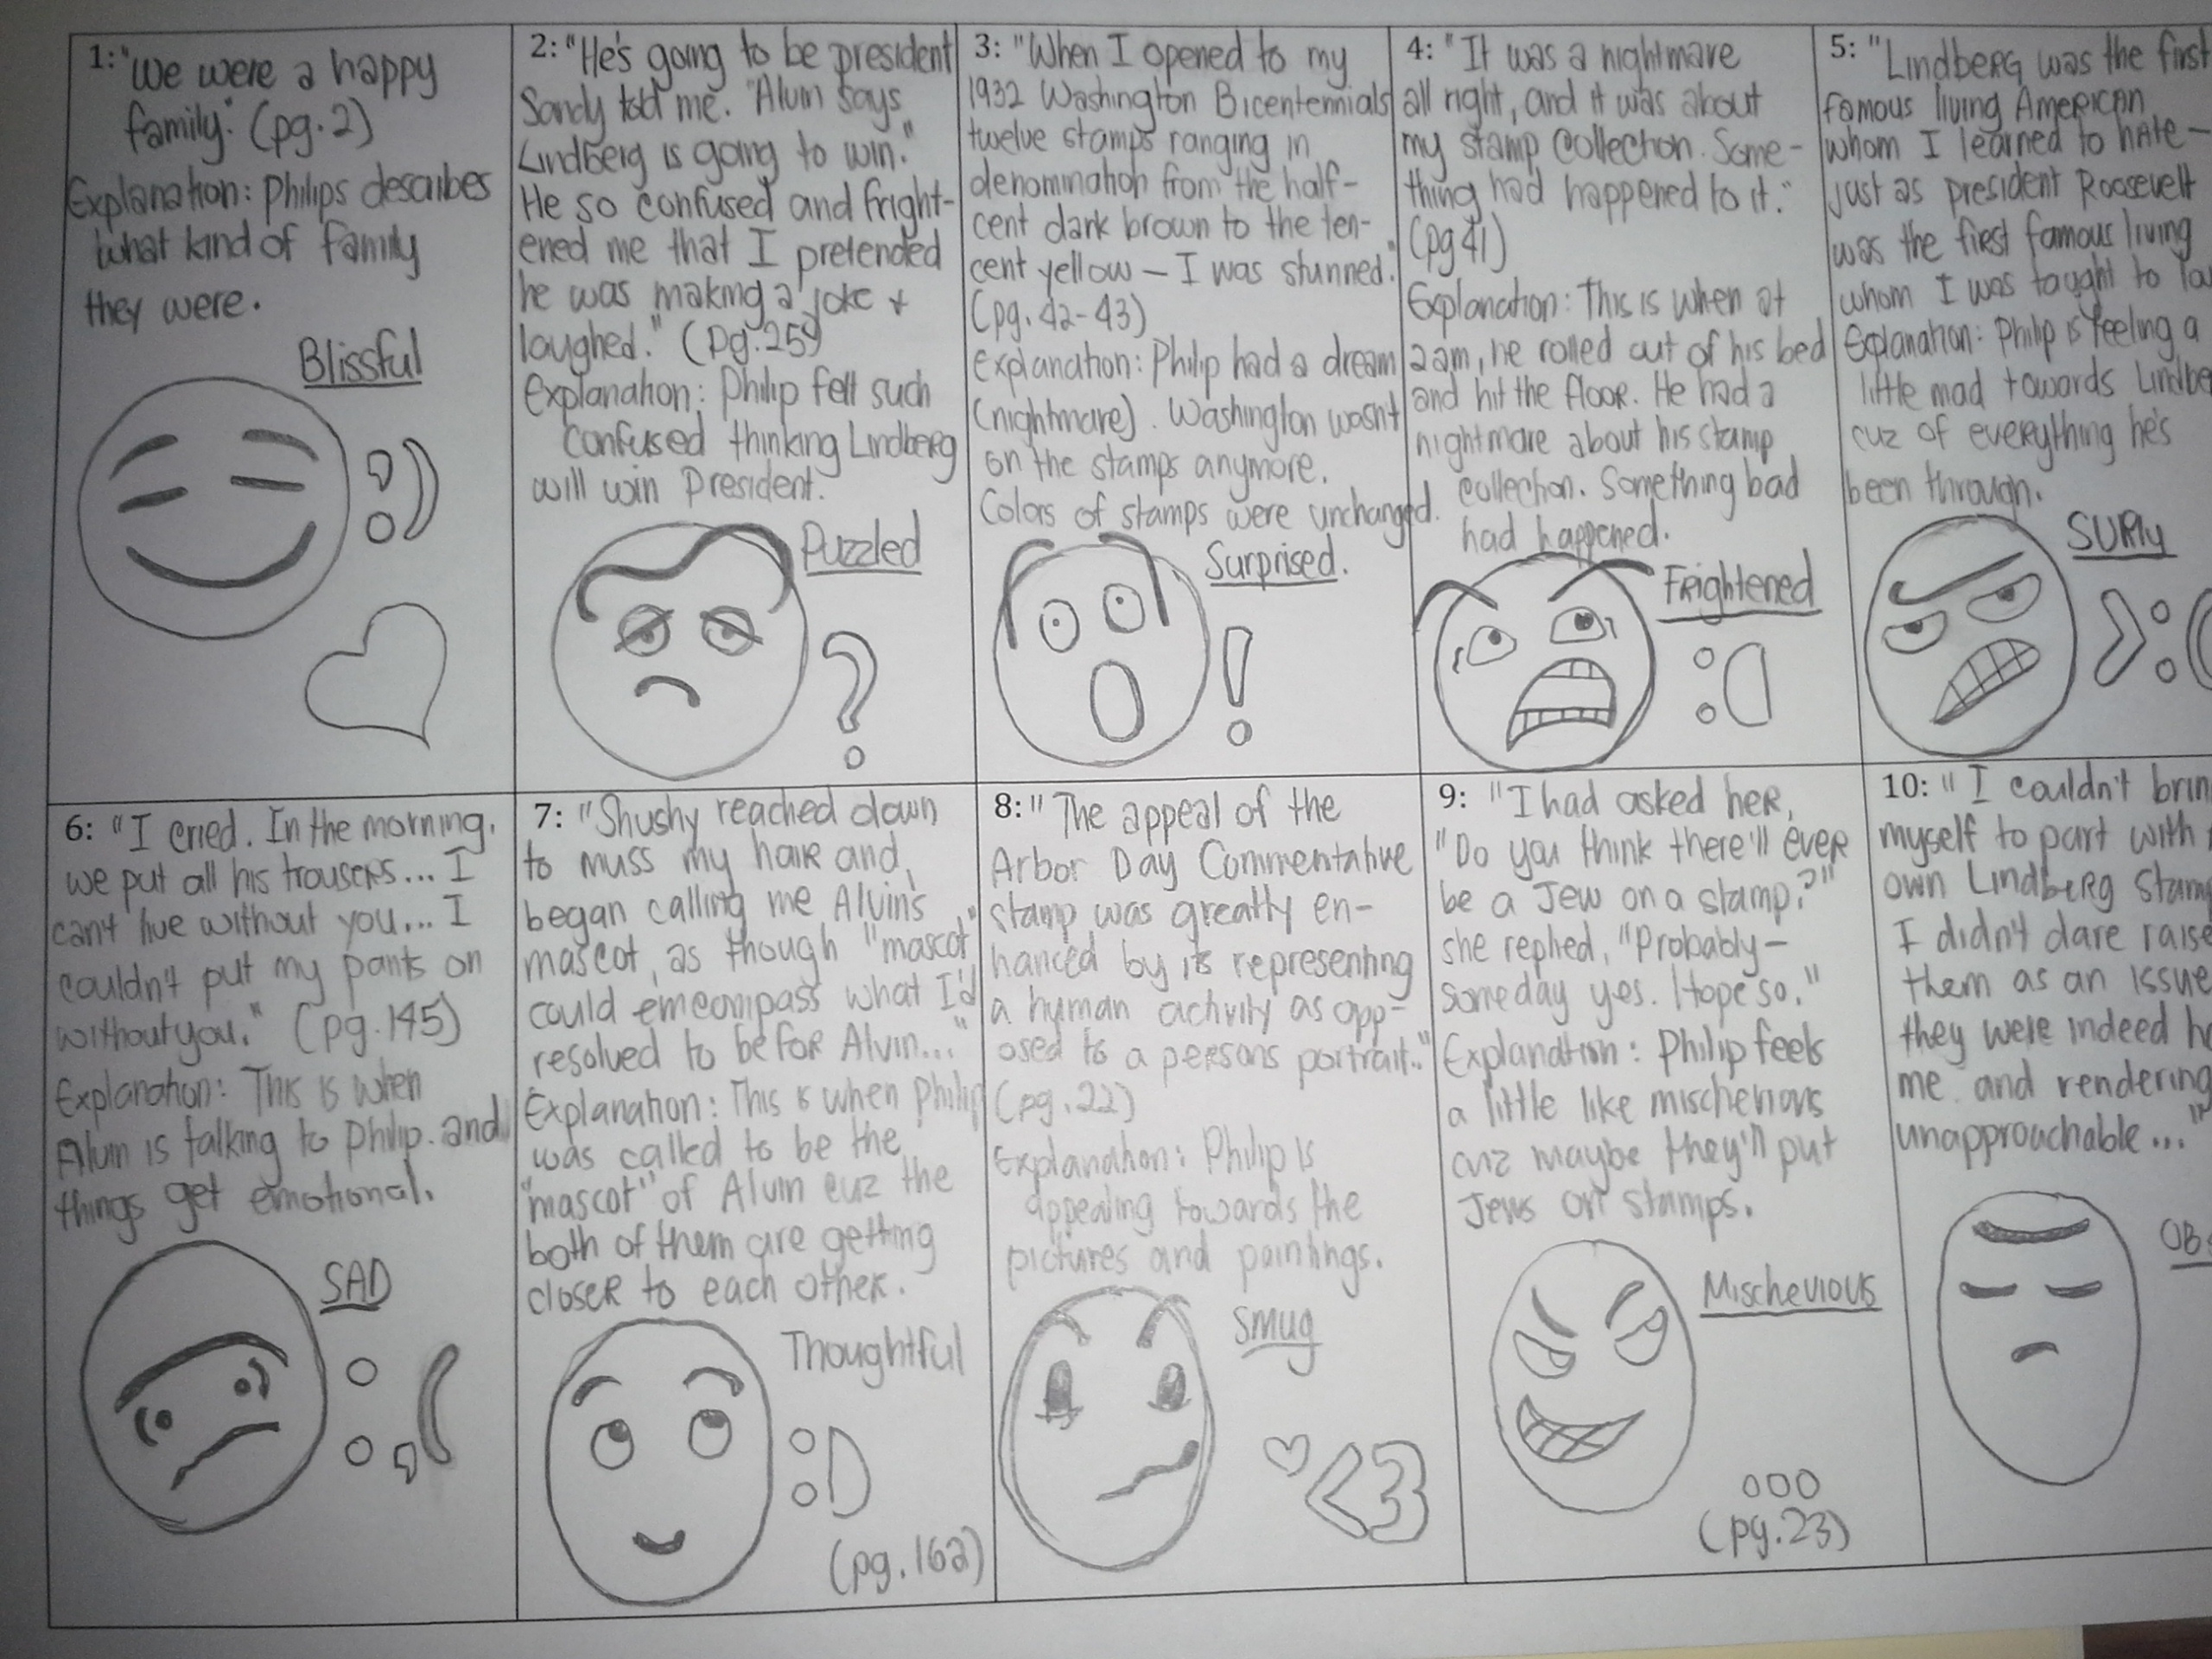 1: "We were a happy
family." (pg. 2)
Explanation: Philips describes
what kind of family
they were.
Blissful
2: "He's going to be president
Sandy told me. "Alvin says
Lindberg is going to win."
He so confused and fright-
ened me that I pretended
he was making a joke +
laughed." (pg. 25)
Explanation: Philip felt such
confused thinking Lindberg
will win President.
Puzzled
?
3: "When I opened to my
1932 Washington Bicentennials
twelve stamps ranging in
denomination from the half-
cent dark brown to the ten-
cent yellow – I was stunned."
(pg. 42-43)
Explanation: Philip had a dream
(nightmare). Washington wasn't
on the stamps anymore.
Colors of stamps were unchanged.
Surprised.
!
4: "It was a nightmare
all right, and it was about
my stamp collection. Some-
thing had happened to it."
(pg 41)
Explanation: This is when at
2am, he rolled out of his bed
and hit the floor. He had a
nightmare about his stamp
collection. Something bad
had happened.
Frightened
5: "Lindberg was the first
famous living American
whom I learned to hate –
just as president Roosevelt
was the first famous living
whom I was taught to
Explanation: Philip is feeling a
little mad towards
cuz of everything he's
been through.
Surly
>:(
6: "I cried. In the morning,
we put all his trousers... I
can't live without you... I
couldn't put my pants on
without you." (pg. 145)
Explanation: This is when
Alvin is talking to Philip. and
things get emotional.
SAD
7: "Shushy reached down
to muss my hair and
began calling me Alvin's
mascot, as though "mascot"
could emcompass what I'd
resolved to be for Alvin..."
Explanation: This is when Philip
was called to be the
"mascot" of Alvin cuz the
both of them are getting
closer to each other.
Thoughtful
:D
(pg. 162)
8: "The appeal of the
Arbor Day Commentative
stamp was greatly en-
hanced by its representing
a human activity as opp-
osed to a persons portrait.."
(pg. 22)
Explanation: Philip is
appealing towards the
pictures and paintings.
Smug
<3
9: "I had asked her,
"Do you think there'll ever
be a Jew on a stamp?"
she replied, "Probably –
someday yes. I hope so."
Explanation: Philip feels
a little like mischevious
cuz maybe they'll put
Jews on stamps.
Mischevious
ooo
(pg. 23)
10: "I couldn't
myself to part with
own Lindberg
I didn't dare raise
them as an issue
they were indeed
me and rendering
unapproachable..."